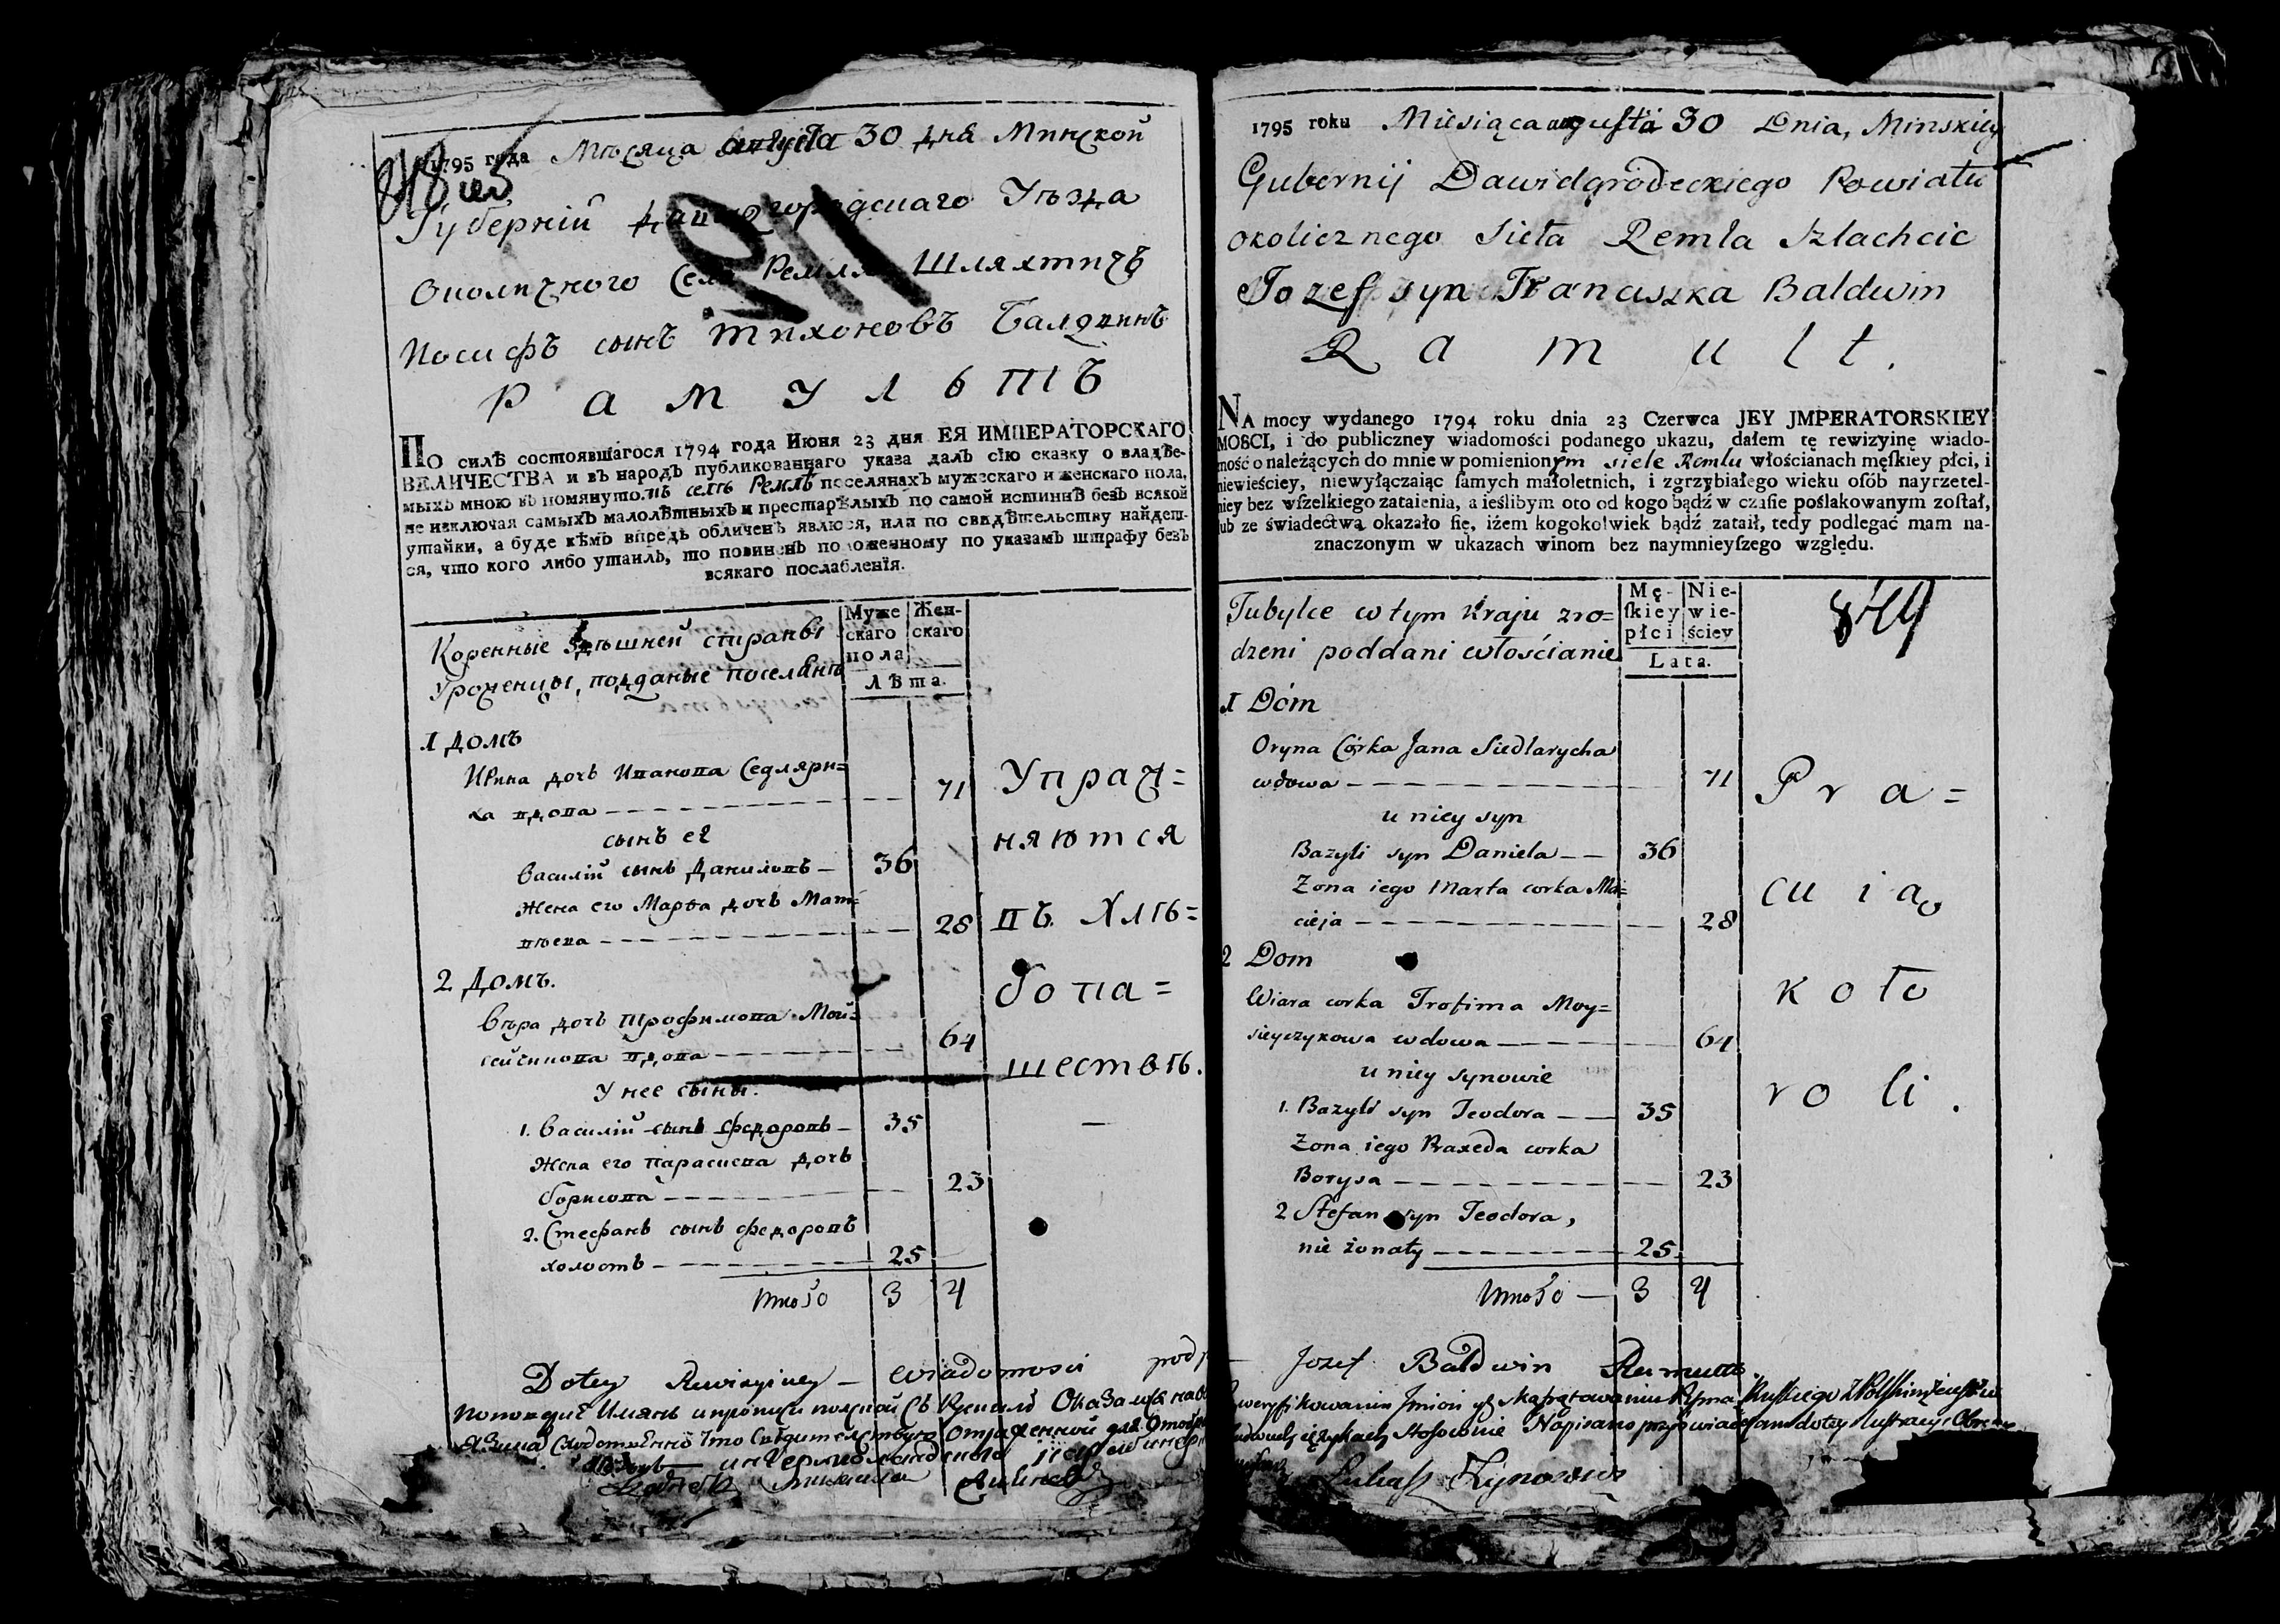 1795 года Мѣсяца августа 30 дня Минской
Губерній Давидгородецкаго Уѣзда
Околичного Села Ремля Шляхтичъ
Иосифъ сынъ Тихоновъ Балдвинъ
Рамультъ
ПО силѣ состоявшагося 1794 года Июня 23 дня ЕЯ ИМПЕРАТОРСКАГО
ВЕЛИЧЕСТВА и въ народъ публикованнаго указа далъ сію сказку о владѣе-
мыхъ мною въ помянутомъ селѣ Ремлѣ поселянахъ мужескаго и женскаго пола,
не изключая самыхъ малолѣтныхъ и престарѣлыхъ по самой истиннѣ безъ всякой
утайки, а буде кѣмъ впредь обличенъ явлюся, или по свидѣтельству найдет-
ся, что кого либо утаилъ, то повиненъ положенному по указамъ штрафу безъ
всякаго послабленія.
Коренные здѣшней стораны
Уроженцы, подданые поселянѣ
Муже
скаго
пола
Жен-
скаго
Лѣта.
1 Домъ
Ирина дочь Иванова Седляри=
ха вдова 71
сынъ ее
Василій сынъ Даниловъ 36
Жена его Марфа дочь Мат=
вѣева 28
2 Домъ.
Вѣра дочь Трофимова Мой=
сейчикова вдова 64
У нее сыны.
1. Василій сынъ Федоровъ 35
Жена его Парасиева дочь
Борисова 23
2. Стефанъ сынъ Федоровъ
холостъ 25
Итого 3 4
Упраж=
няются
въ Хлѣ=
бопа=
шествѣ.
Do tey Rewizyiney wiadomości
911
1795 roku Miesiąca augusta 30 Dnia, Minskiey
Gubernij Dawidgrodeckiego Powiatu
okolicznego Sieła Remla Szlachcic
Jozef syn Franciszka Baldwin
Ramult.
NA mocy wydanego 1794 roku dnia 23 Czerwca JEY JMPERATORSKIEY
MOSCI, i do publiczney wiadomości podanego ukazu, dałem tę rewizyinę wiado-
mość o należących do mnie w pomienionym siele Remlu włościanach męſkiey płci, i
niewieściey, niewyłączaiąc ſamych małoletnich, i zgrzybiałego wieku oſób nayrzetel-
niey bez wſzelkiego zataienia, a ieślibym oto od kogo bądź w czaſie poślakowanym zoſtał,
lub ze świadectwa okazało ſię, iżem kogokolwiek bądź zataił, tedy podlegać mam na-
znaczonym w ukazach winom bez naymnieyſzego względu.
Tubylce w tym kraju zro=
dzeni poddani włościanie
Mę-
ſkiey
płci
Nie-
wie-
ściey
Lata.
1 Dóm
Oryna Córka Jana Siedlarycha
wdowa 71
u niey syn
Bazyli syn Daniela 36
Zona iego Marta corka Ma=
cieja 28
2 Dom
Wiara corka Trofima Moy=
sieyczykowa wdowa 64
u niey synowie
1. Bazyli syn Teodora 35
Zona iego Praxeda corka
Borysa 23
2 Stefan syn Teodora,
nie żonaty 25
Итого 3 4
Pra=
cuią
koło
roli.
Jozef Baldwin Ramułt
Łukasz